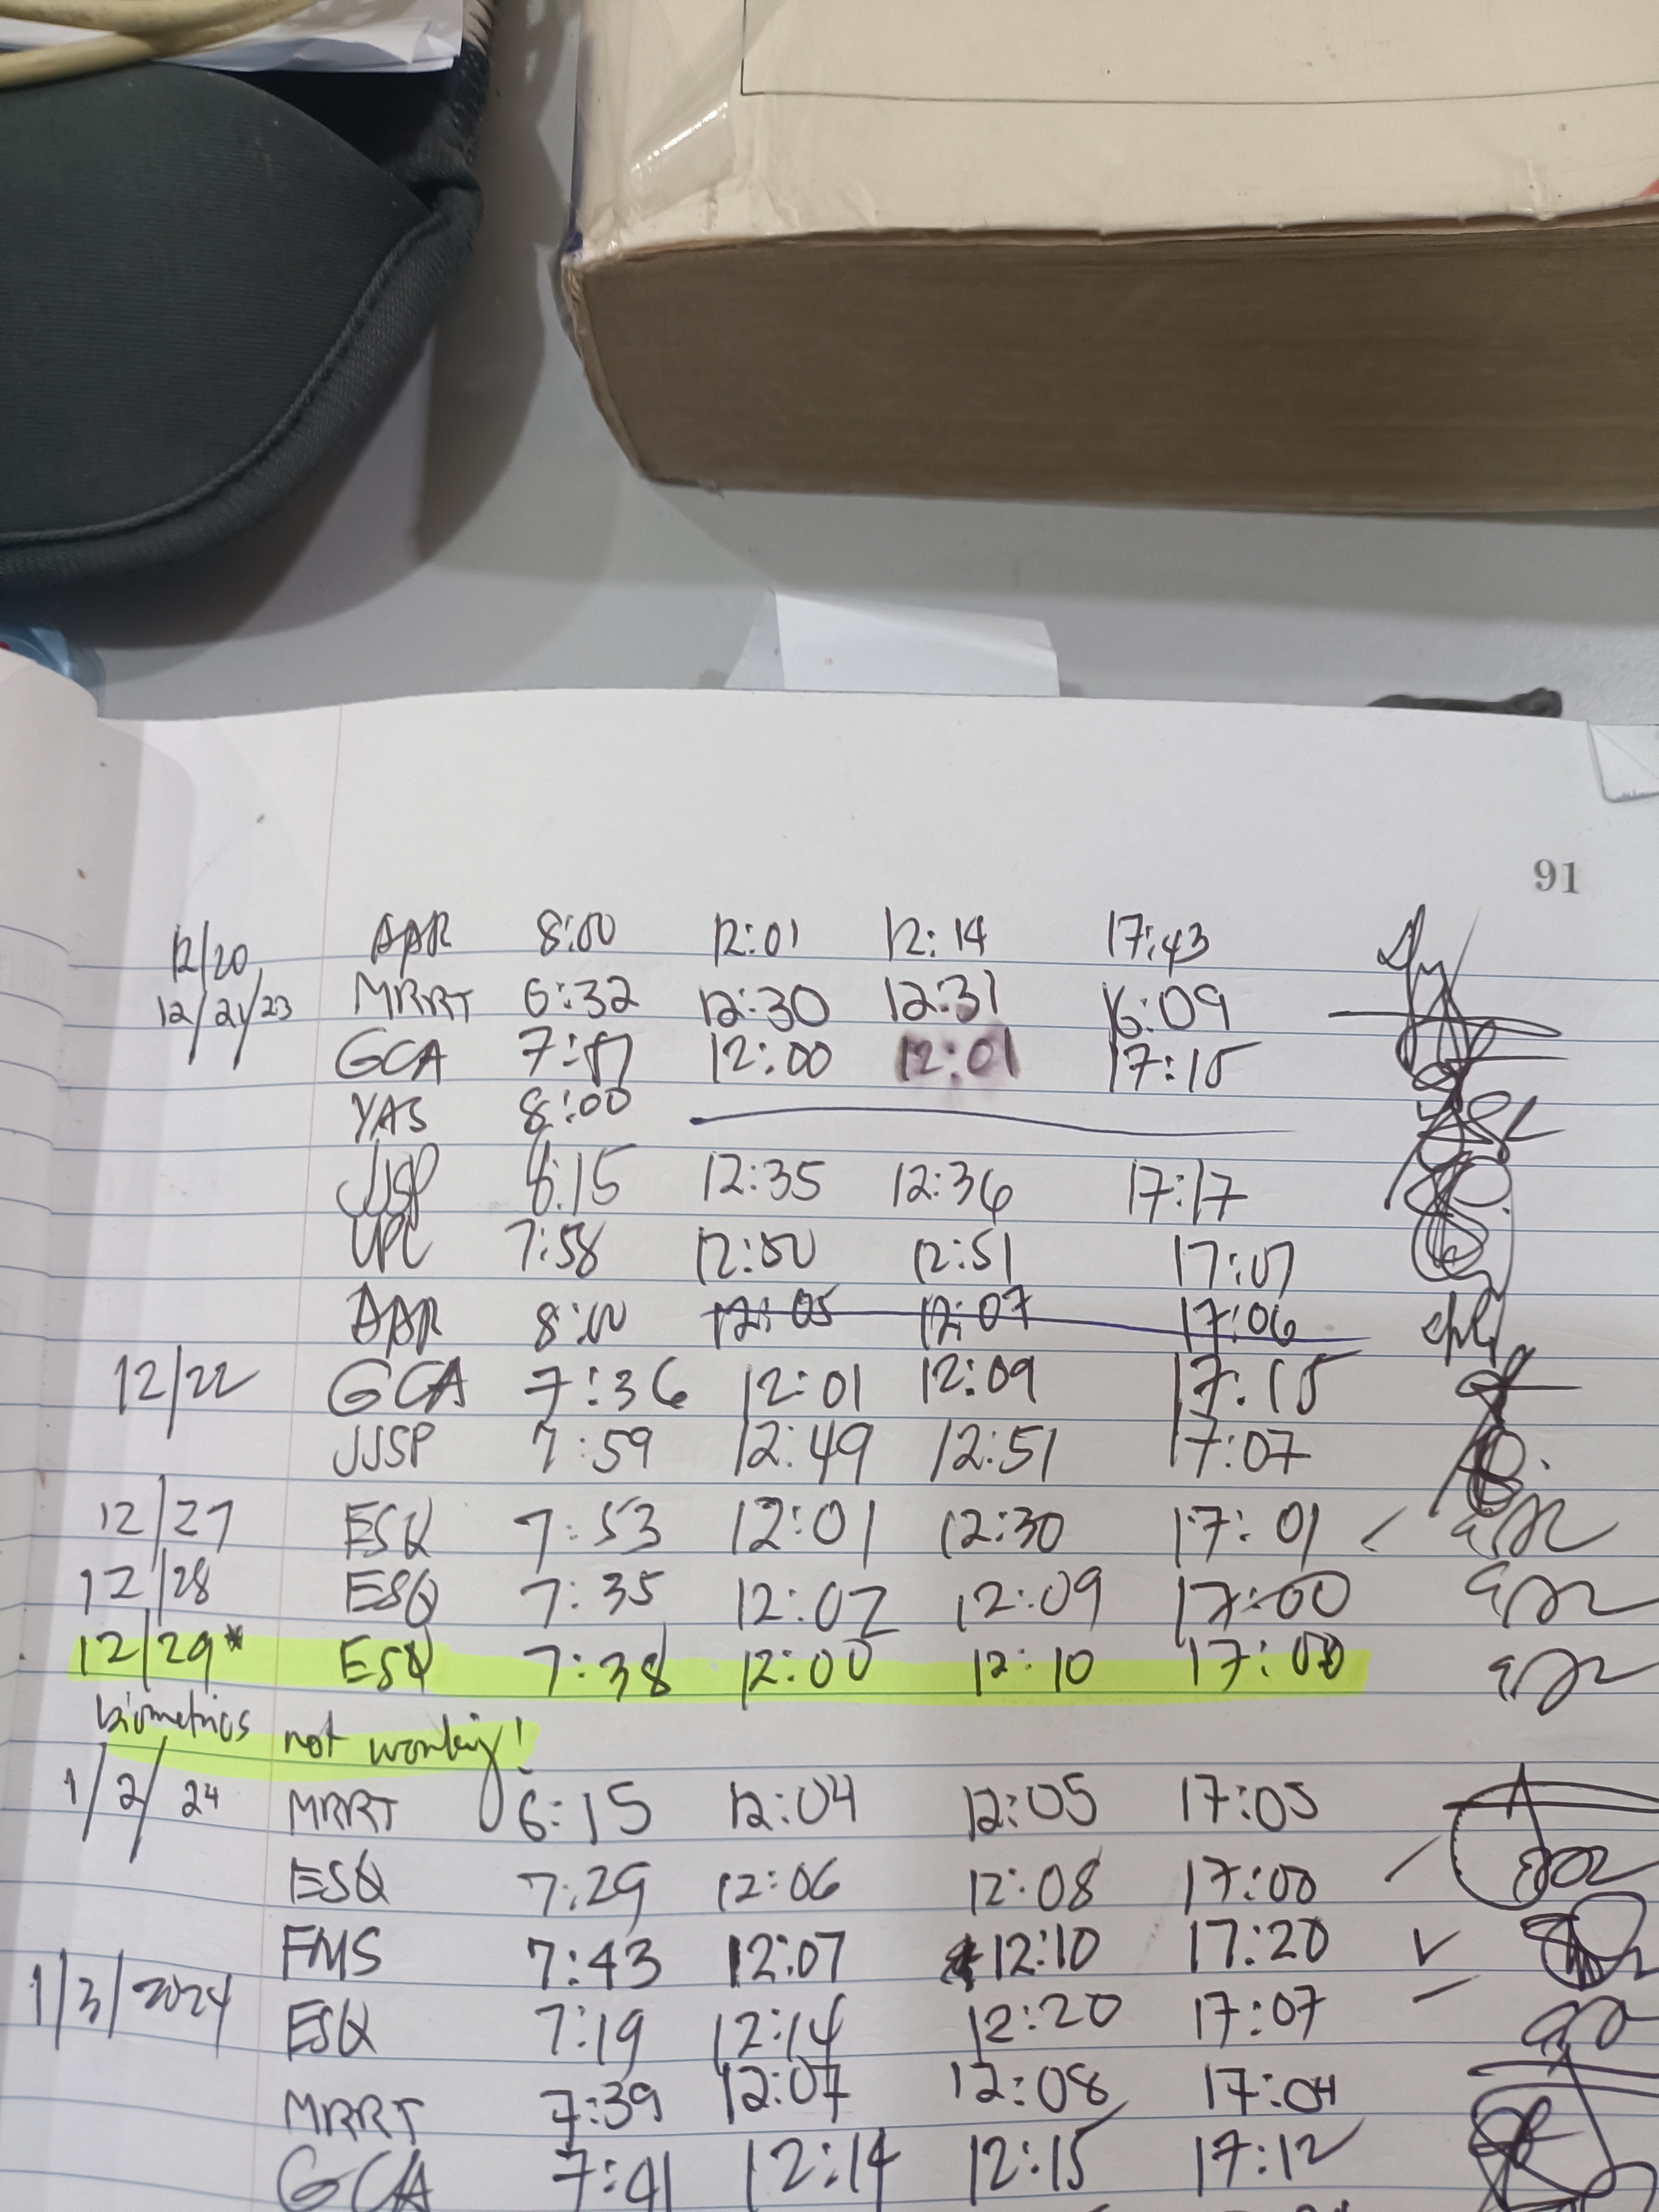 91
12/20 AAR 8:00 12:01 12:14 17:43
12/21/23 MRRT 6:32 12:30 12:31 16:09
GCA 12:00 12:01 17:15
YAS 8:00
JJSP 12:35 12:36 17:17
7:58 12:50 12:51 17:07
AAR 8:00 12:05 12:07 17:06
12/22 GCA 7:36 12:01 12:09 17:15
JJSP 7:59 12:49 12:51 17:07
12/27 ESQ 7:53 12:01 12:30 17:01
12/28 ESQ 7:35 12:07 12:09 17:00
12/29* ESQ 7:38 12:00 12:10 17:00
biometrics not working!
1/2/24 MRRT 6:15 12:04 12:05 17:05
ESQ 7:29 12:06 12:08 17:00
FMS 7:43 12:07 12:10 17:20
1/3/2024 ESQ 7:19 12:14 12:20 17:07
MRRT 7:39 12:07 12:08 17:04
GCA 7:41 12:14 12:15 17:12